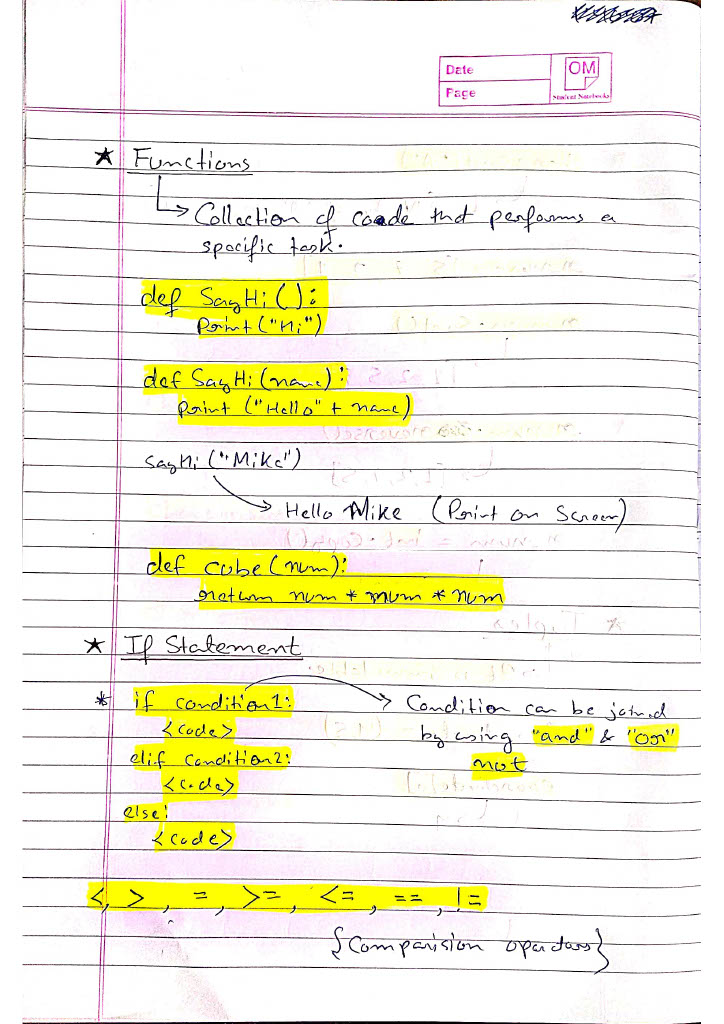 Date
OM
Page
Student Notebooks
* Functions
Collection of code that performs a
specific task.
def SayHi():
Print("Hi")
def SayHi(name):
print ("Hello" + name)
sayHi ("Mike")
Hello Mike (Print on Screen)
def cube(num):
return num * num * num
* If Statement
* if condition1:
<code>
elif condition2:
<code>
else:
<code>
Condition can be joined
by using "and" & "or"
not
<, >, =, >=, <=, ==, !=
{Comparision operators}